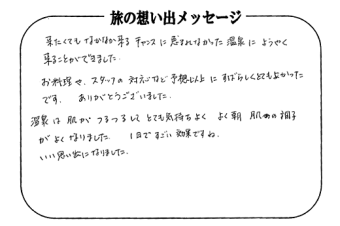 旅の想い出メッセージ
来たくてもなかなか来るチャンスに恵まれなかった温泉にようやく
来ることができました。
お料理や、スタッフの対応など予想以上にすばらしくとてもよかった
です。ありがとうございました。
温泉は肌がつるつるしてとても気持ちよくよく朝肌めの調子
がよくなりました。1日ですごい効果ですね。
いい思い出になりました。